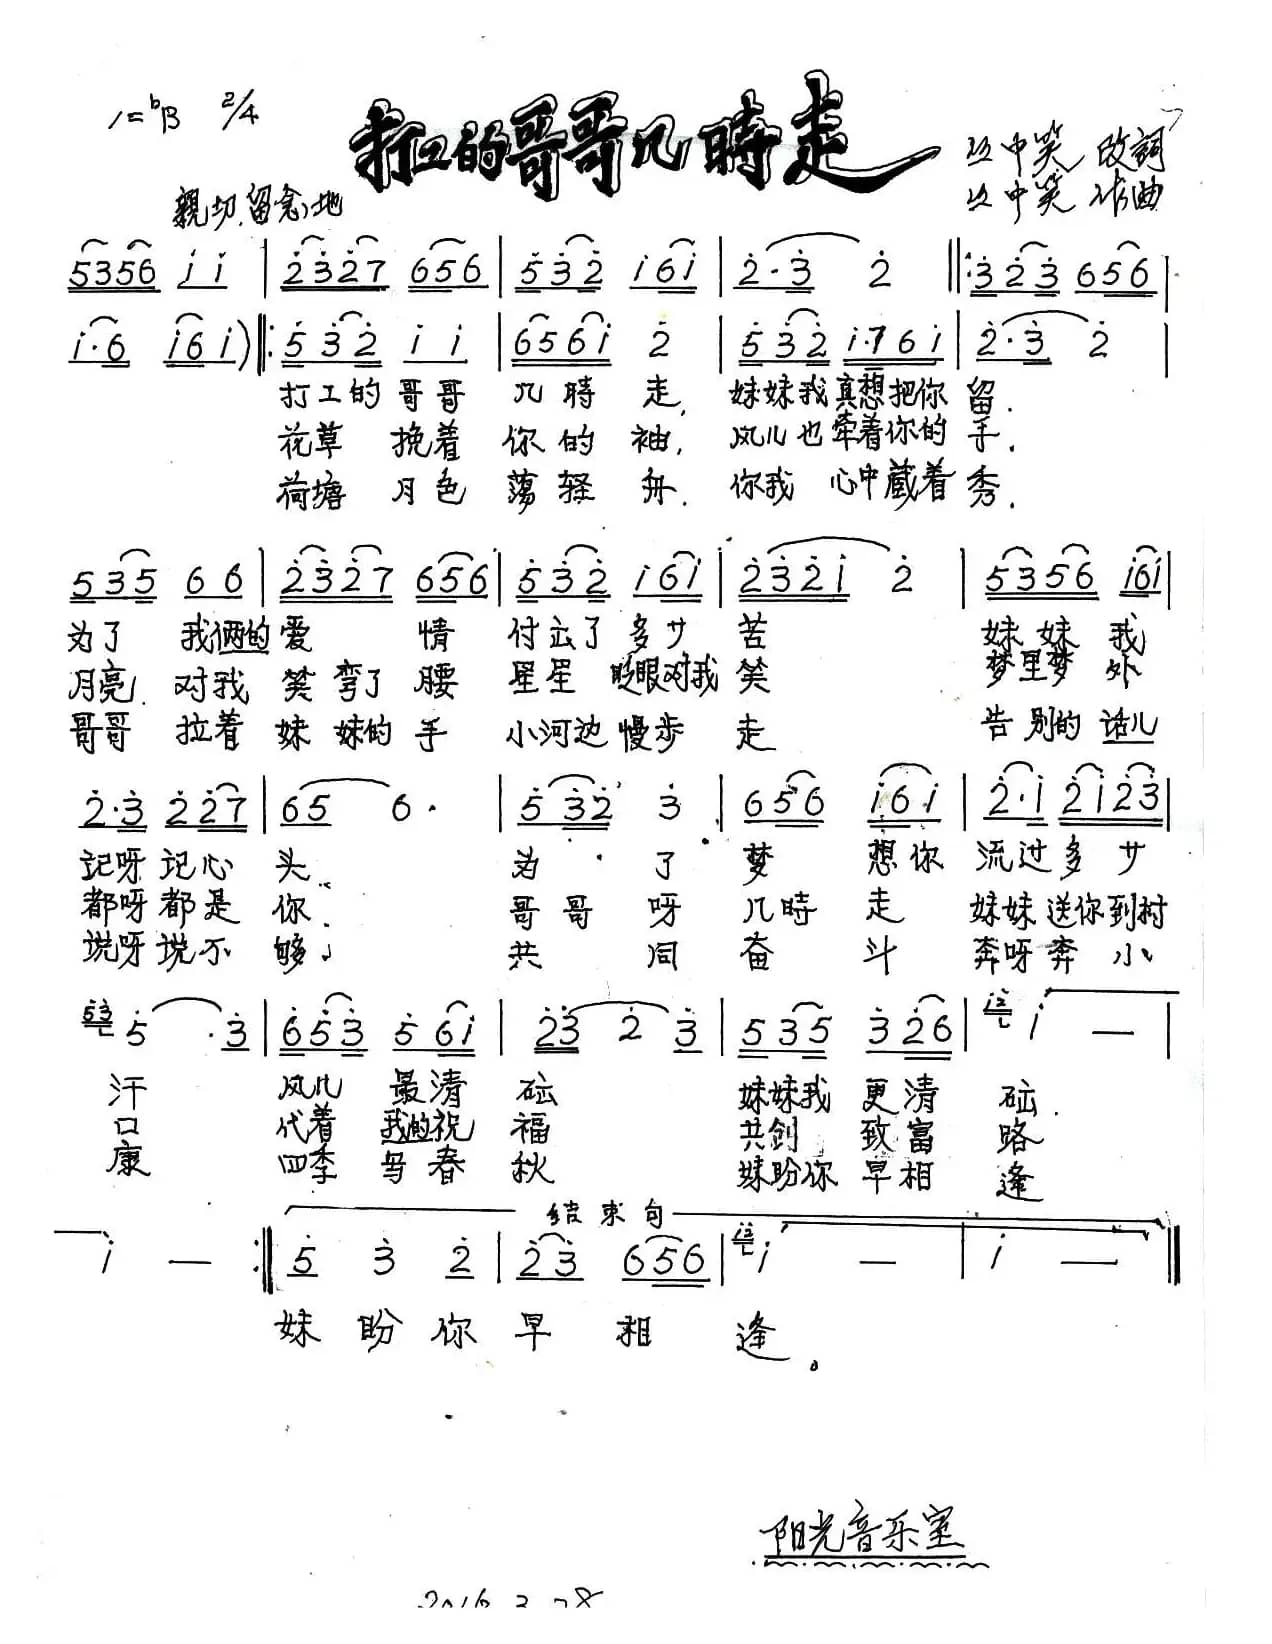 1=ᵇB 2/4
打工的哥哥几時走
丛中笑 改詞
親切.留念地
丛中笑 作曲
5356 i i | 2327 656 | 532 i6i | 2·3 2 ‖: 323 656 |
i·6 i6i) ‖: 532 i i | 656i 2 | 532 i·76i | 2·3 2 |
打工的哥哥 几時 走, 妹妹我真想把你 留.
花草 挽着 你的 袖, 风儿也牵着你的 手.
荷塘 月色 荡轻 舟. 你我 心中藏着 秀.
535 66 | 2327 656 | 532 i6i | 232i 2 | 5356 i6i |
为了 我俩的爱 情 付出了多少 苦 妹妹 我
月亮 对我 笑弯了腰 星星 眨眼对我 笑 梦里梦 外
哥哥 拉着 妹妹的手 小河边慢步 走 告别的 话儿
2·3 227 | 65 6· | 532 3 | 656 i6i | 2·i 2i23 |
记呀记心 头. 为 了 梦 想你 流过多少
都呀都是 你. 哥哥 呀 几時 走 妹妹送你到村
说呀说不 够, 共 同 奋 斗 奔呀奔 小
53 5 ·3 | 653 56i | 23 2 3 | 535 326 | i — |
汗 风儿 最清 础 妹妹我 更清 础.
口 代着 我的祝 福 共创 致富 路
康 四季 与春 秋 妹盼你 早相 逢
结束句
i — :‖ 5 3 2 | 23 656 | i — | i — ‖
妹 盼 你 早 相 逢。
阳光音乐室
2016.3.28